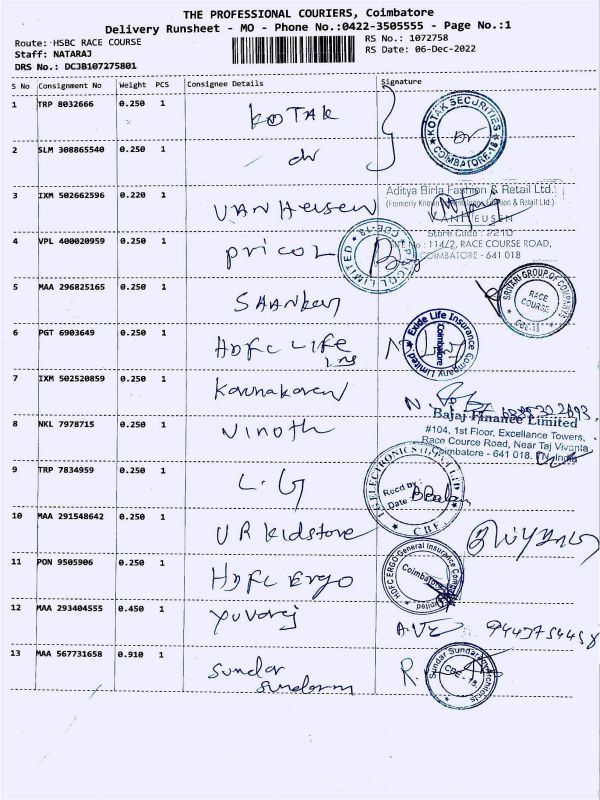 THE PROFESSIONAL COURIERS, Coimbatore
Delivery Runsheet - MO - Phone No.:0422-3505555 - Page No.:1
Route: HSBC RACE COURSE RS No.: 1072758
Staff: NATARAJ RS Date: 06-Dec-2022
DRS No.: DCJB107275801
S No Consignment No Weight PCS Consignee Details Signature
1 TRP 8032666 0.250 1 KOTAK
KOTAK SECURITIES COIMBATORE-18
2 SLM 308865540 0.250 1 do
3 IXM 502662596 0.220 1 VAN Heusen
Aditya Birla Fashion & Retail Ltd.
(Formerly Known Fashion & Retail Ltd.)
VAN HEUSEN
Store Code : 2210
4 VPL 400020959 0.250 1 Pricol
PRICOL LIMITED CBE-18
No : 114/2, RACE COURSE ROAD,
COIMBATORE - 641 018
5 MAA 296825165 0.250 1
SRIVARI GROUP OF COMPANIES RACE COURSE CBE-18
6 PGT 6903649 0.250 1 HDFC LIFE
Ins
Exide Life Insurance Company Limited Coimbatore
7 IXM 502520859 0.250 1 Karunakaran
8 NKL 7978715 0.250 1 Vinoth
Bajaj Finance Limited
#104, 1st Floor, Excellance Towers,
Race Cource Road, Near Taj Vivanta
Coimbatore - 641 018. TN, India
9 TRP 7834959 0.250 1 L.G
LG ELECTRONICS LTD
Recd by
Date
CBE
10 MAA 291548642 0.250 1 UR Kidstore
11 PON 9505906 0.250 1 HDFC Ergo
HDFC ERGO General Insurance Company Limited Coimbatore
12 MAA 293404555 0.450 1 Yuvaraj
13 MAA 567731658 0.910 1 Sundar
Sundaram
Sundar Sundar Architects CBE-18